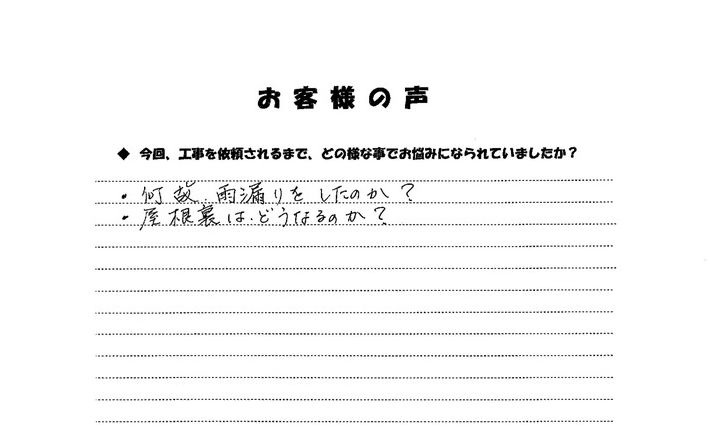 お客様の声
◆ 今回、工事を依頼されるまで、どの様な事でお悩みになられていましたか？
・何故、雨漏りをしたのか？
・屋根裏は、どうなるのか？